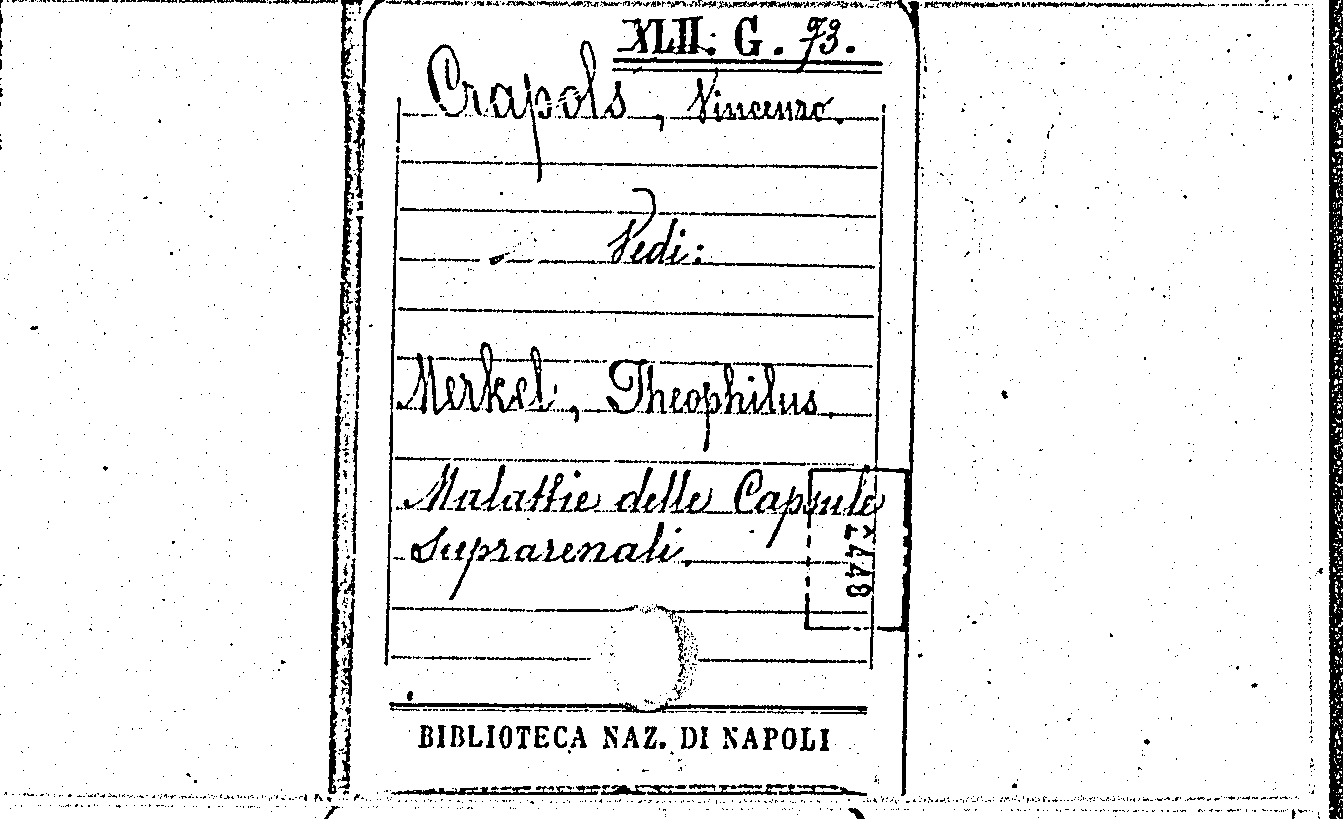 XLII: G. 73.
Crapols, Vincenzo.
Vedi:
Merkel, Theophilus.
Malattie delle Capsule
Suprarenali.
×2448
BIBLIOTECA NAZ. DI NAPOLI